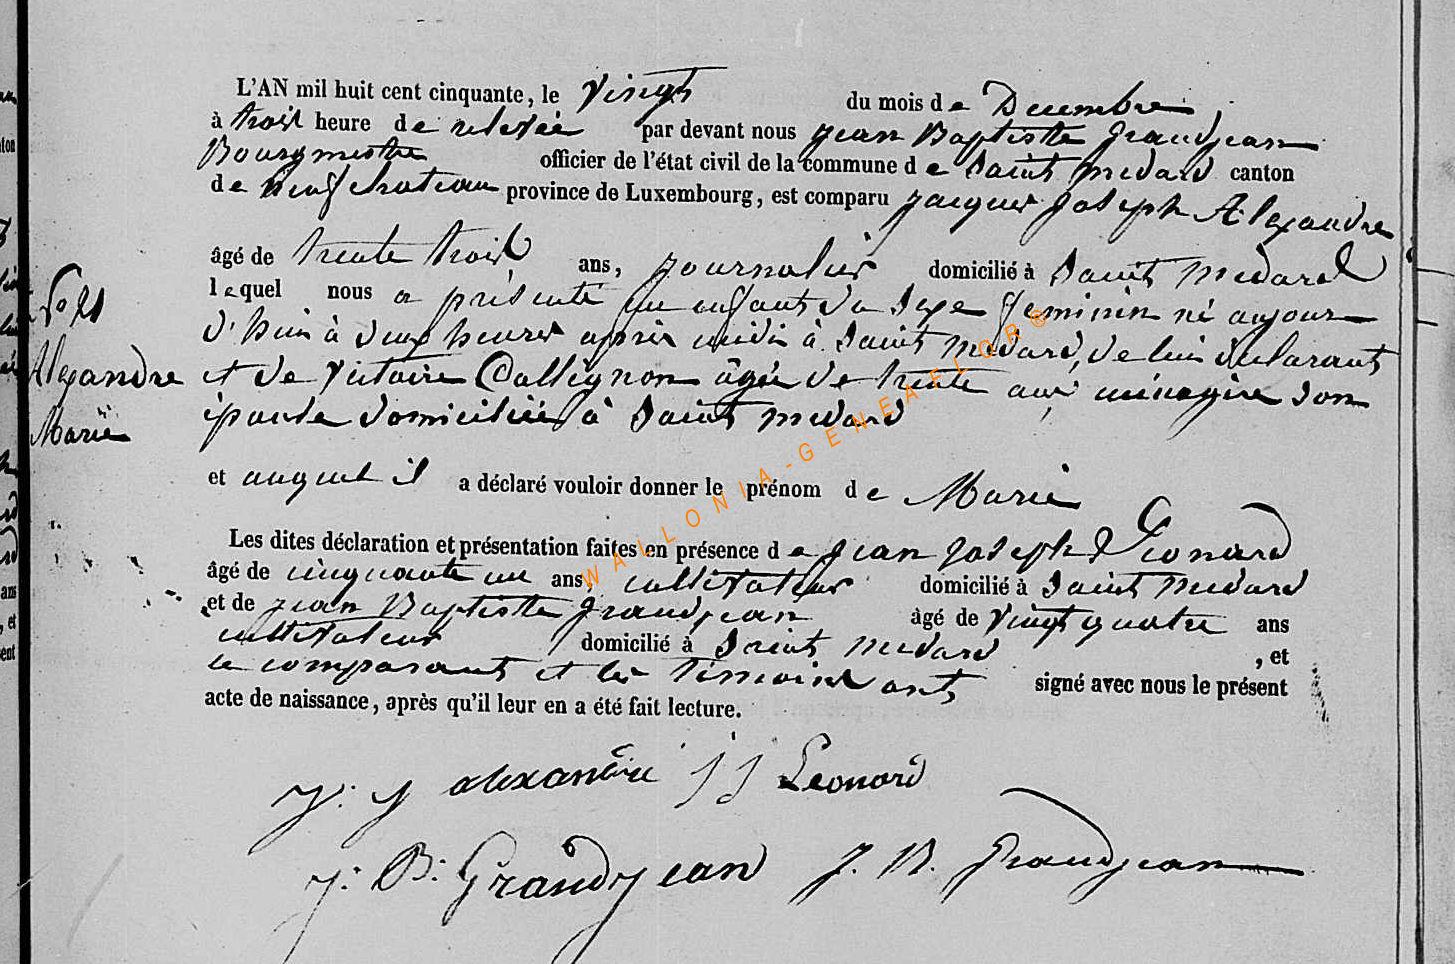 L'AN mil huit cent cinquante, le vingt du mois de Decembre,
à trois heure de relevée par devant nous jean Baptiste grandjean
Bourgmestre officier de l'état civil de la commune de Saint medard canton
de neufchateau province de Luxembourg, est comparu jacques joseph Alexandre
âgé de trente trois ans, journalier domicilié à Saint medard
lequel nous a présenté un enfant du sexe feminin né aujour
d'hui à deux heures après midi à Saint medard, de lui déclarant
et de Victoire Collignon âgée de trente ans ménagère son
épouse domiciliée à Saint medard
Alexandre
Marie
et auquel il a déclaré vouloir donner le prénom de Marie
Les dites déclaration et présentation faites en présence de jean joseph Léonard
âgé de cinquante un ans, cultivateur domicilié à Saint medard
et de jean Baptiste grandjean âgé de vingt quatre ans
cultivateur domicilié à Saint medard , et
le comparant et les témoins ont signé avec nous le présent
acte de naissance, après qu'il leur en a été fait lecture.
J: J alexandre J J Leonard
J: B: Grandjean J. B. Grandjean
WALLONIA-GENEAFLOR®